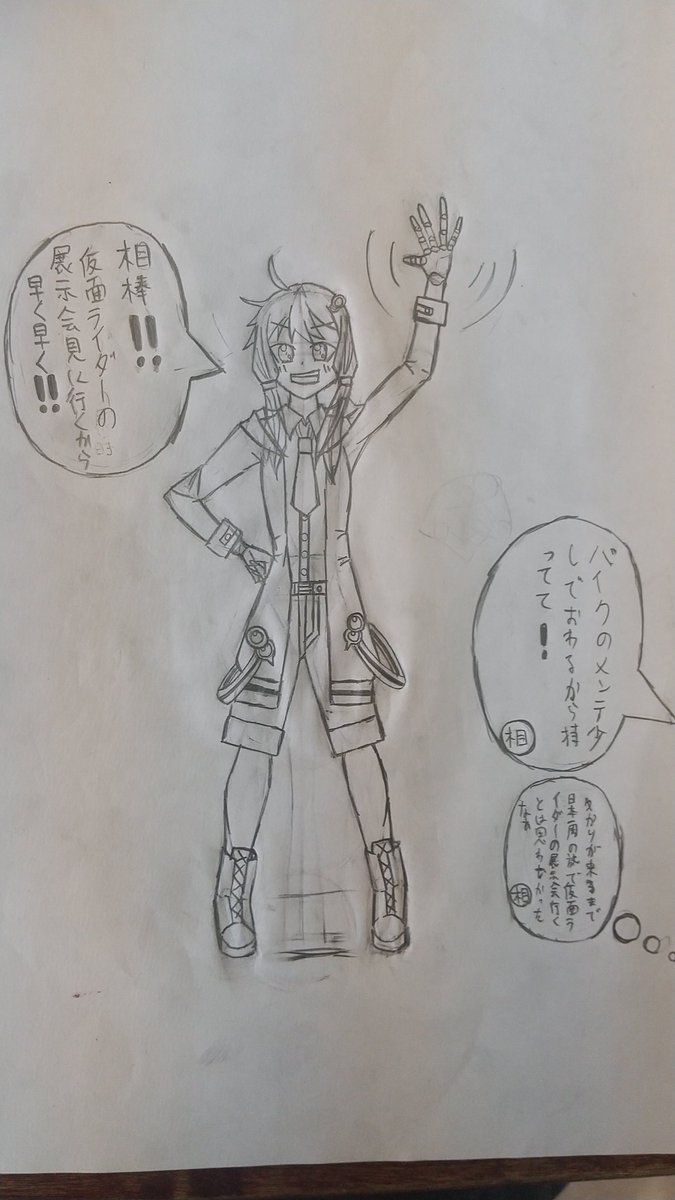 相棒!!
仮面ライダーの
展示会見に行くから
早く早く!!
バイクのメンテ少
しでおわるから待
ってて!
相
あかりが来るまで
日本一周の旅で仮面ラ
イダーの展示会行く
とは思わなかった
なぁ
相